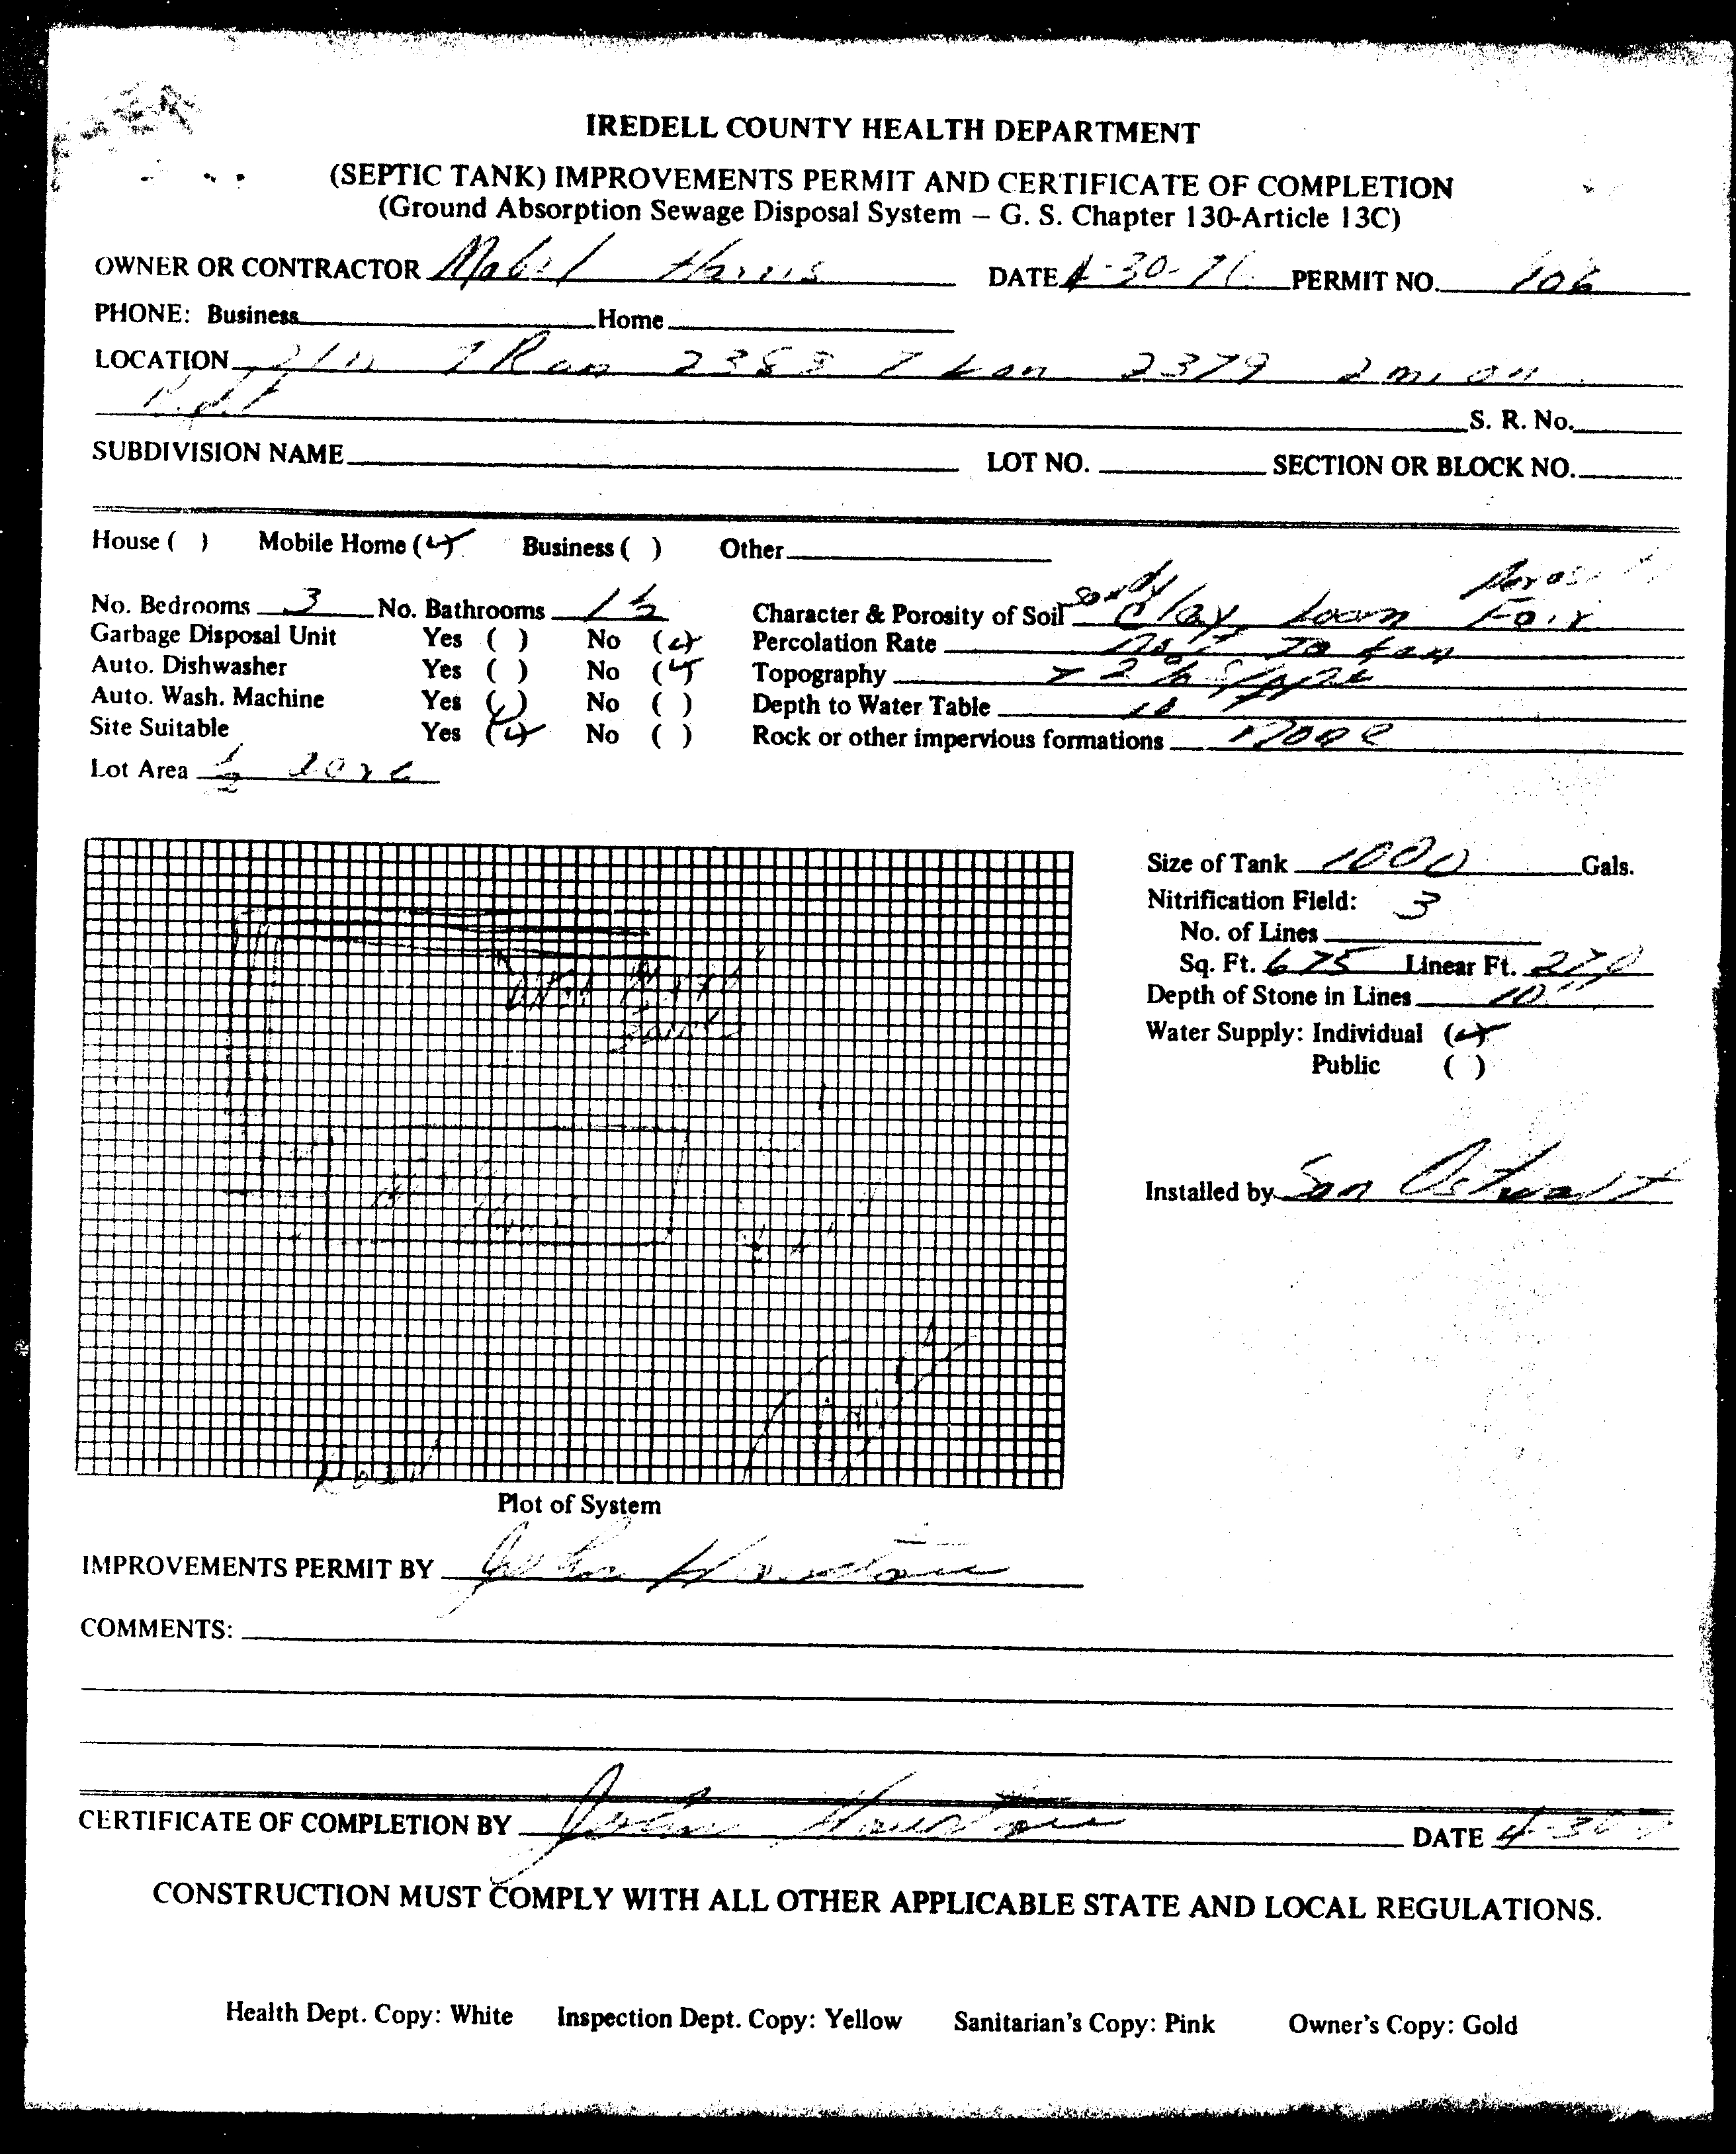 IREDELL COUNTY HEALTH DEPARTMENT
(SEPTIC TANK) IMPROVEMENTS PERMIT AND CERTIFICATE OF COMPLETION
(Ground Absorption Sewage Disposal System – G. S. Chapter 130-Article 13C)
OWNER OR CONTRACTOR Mabel Harris DATE 4-30-76 PERMIT NO. 106
PHONE: Business Home
LOCATION 21 N TR on 2388 TL on 2379 2 mi on
Right
S. R. No.
SUBDIVISION NAME LOT NO. SECTION OR BLOCK NO.
House ( ) Mobile Home (✓) Business ( ) Other
No. Bedrooms 3 No. Bathrooms 1½ Character & Porosity of Soil Sandy Clay Loam Porosity Fair
Garbage Disposal Unit Yes ( ) No (✓) Percolation Rate not Taken
Auto. Dishwasher Yes ( ) No (✓) Topography 2% Slope
Auto. Wash. Machine Yes (✓) No ( ) Depth to Water Table 10
Site Suitable Yes (✓) No ( ) Rock or other impervious formations none
Lot Area ½ acre
Size of Tank 1000 Gals.
Nitrification Field: 3
No. of Lines
Sq. Ft. 675 Linear Ft. 270
Depth of Stone in Lines 10"
Water Supply: Individual (✓)
Public ( )
Installed by Sam Ostwalt
Road
Plot of System
IMPROVEMENTS PERMIT BY John Houston
COMMENTS:
CERTIFICATE OF COMPLETION BY John Houston DATE 4-30
CONSTRUCTION MUST COMPLY WITH ALL OTHER APPLICABLE STATE AND LOCAL REGULATIONS.
Health Dept. Copy: White Inspection Dept. Copy: Yellow Sanitarian's Copy: Pink Owner's Copy: Gold